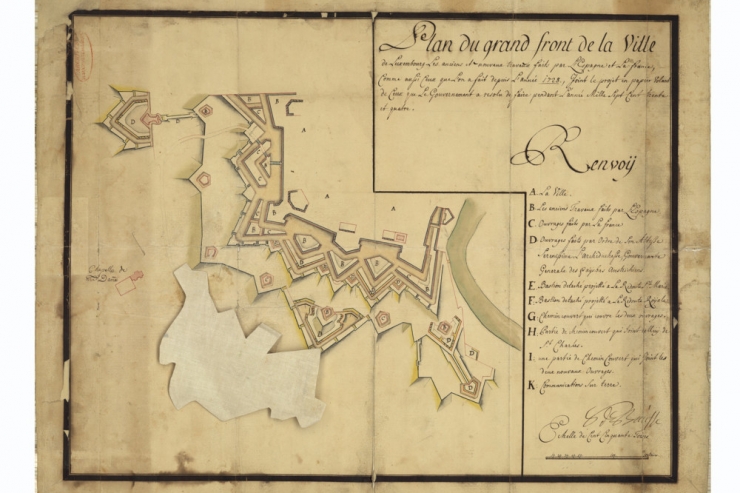 Plan du grand front de la Ville
de Luxembourg Les anciens et nouveaux travaux faits par L'Espagne et La france,
Comme aussi Ceux que L'on a fait depuis L'année 1728, Joint le projet en papier Volant
de Ceux que Le Gouvernement a resolu de faire pendant L'année Mille Sept Cent trente
et quatre.
Renvoÿ
A La Ville.
B Les anciens travaux faits par L'Espagne
C Ouvrages faits par La france
D Ouvrages faits par Ordre de Son Altesse
Serenissime L'archiduchesse, Gouvernante
Generale des Païs bas Autrichiens
E Bastion detaché projetté a La Redoute
F Bastion detaché projetté a La Redoute Royale
G Chemin couvert qui couvre les deux ouvrages
H Partie de
St Charles.
I une partie de Chemin Couvert qui Joint les
deux nouveaux Ouvrages.
K Communication Sur terre.
Echelle de Cent Cinquante
Chapelle de